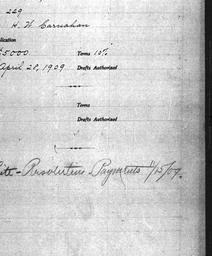 229
H. W. Carnahan
lication
$5000 Terms 10%
April 20, 1909 Drafts Authorized
Terms
Drafts Authorized
Payments 11/15/09.